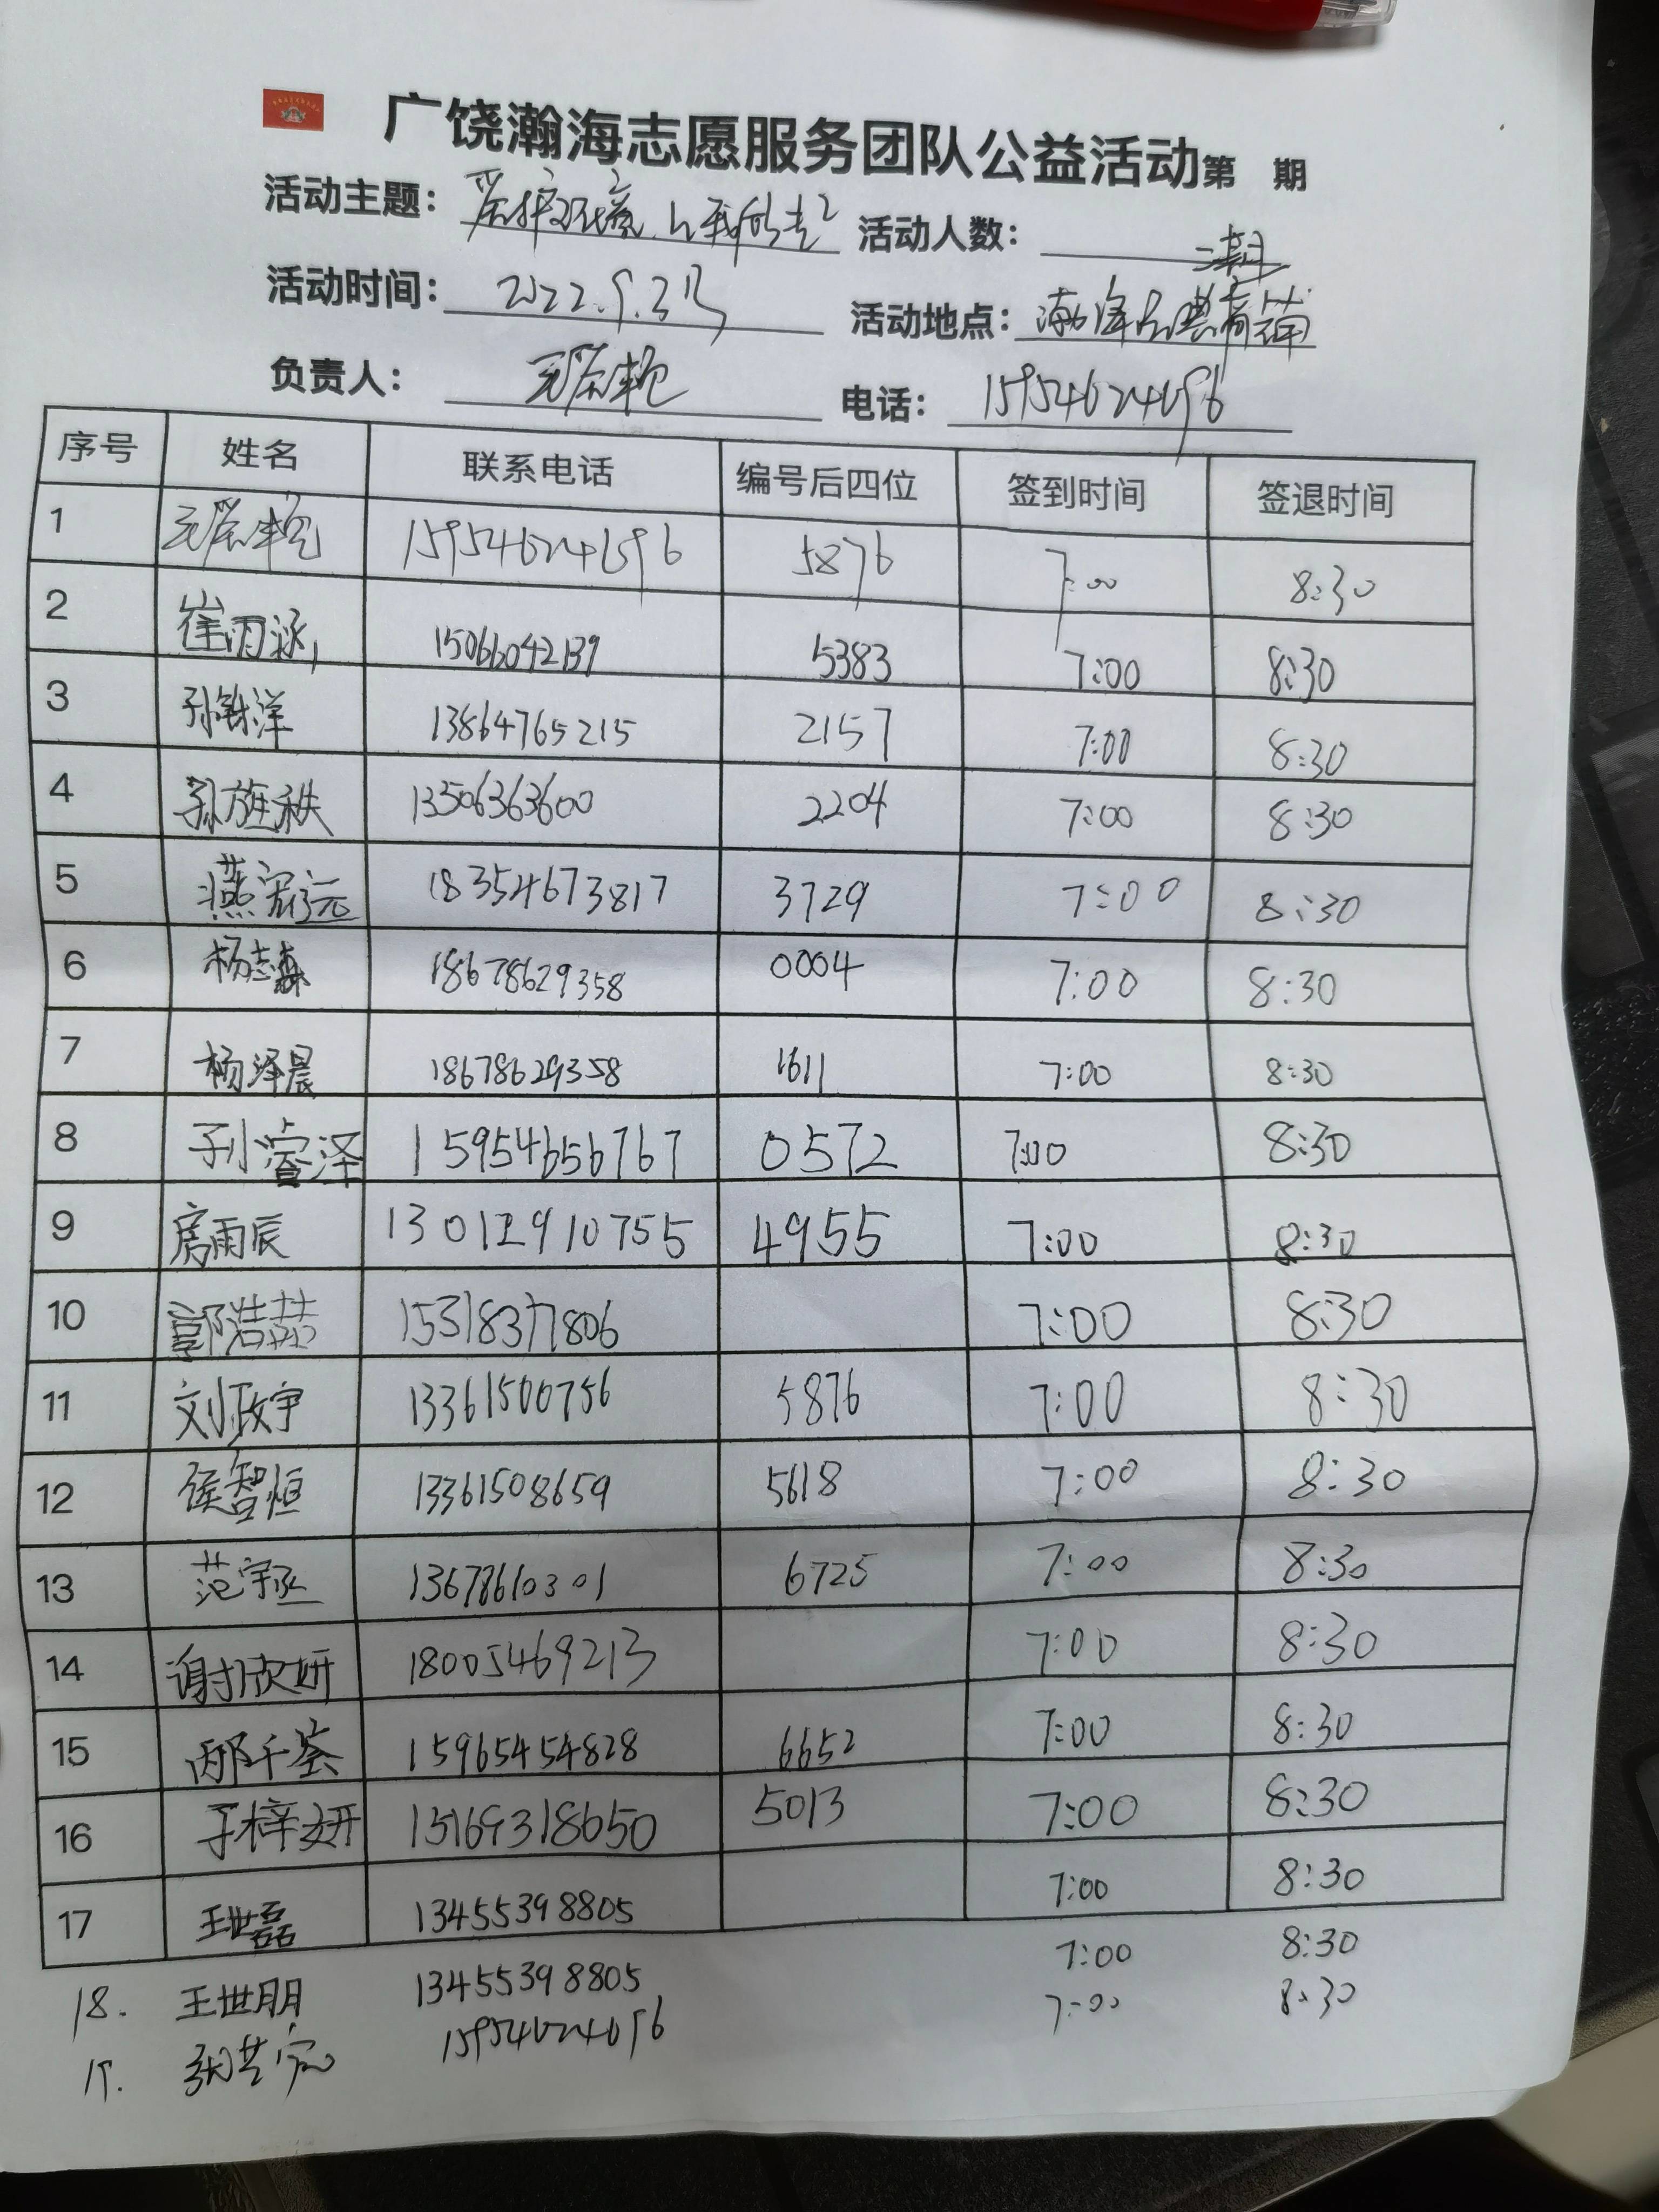 广饶瀚海志愿服务团队公益活动第 期
活动主题： 爱护环境 活动人数：
活动时间： 2022.9.3 活动地点： 渤海
负责人： 电话： 15954624696
序号 姓名 联系电话 编号后四位 签到时间 签退时间
1 15954624696 5876 7:00 8:30
2 崔雨涵 15066042139 5383 7:00 8:30
3 孙铢洋 13864765215 2157 7:00 8:30
4 13506363600 2204 7:00 8:30
5 燕宏远 18354673817 3729 7:00 8:30
6 杨志森 18678629358 0004 7:00 8:30
7 杨泽晨 18678629358 1611 7:00 8:30
8 孙睿泽 15954656767 0572 7:00 8:30
9 房雨辰 4955 7:00 8:30
10 郭浩喆 15318377806 7:00 8:30
11 刘政宇 13361500756 5876 7:00 8:30
12 侯智恒 13361508659 5618 7:00 8:30
13 范宇丞 13678610301 6725 7:00 8:30
14 谢欣妍 18005469213 7:00 8:30
15 邴千荃 15965454828 6652 7:00 8:30
16 于梓妍 15169318650 5013 7:00 8:30
17 王世磊 13455398805 7:00 8:30
18. 王世朋 13455398805 7:00 8:30
19. 15954624696 7:00 8:30